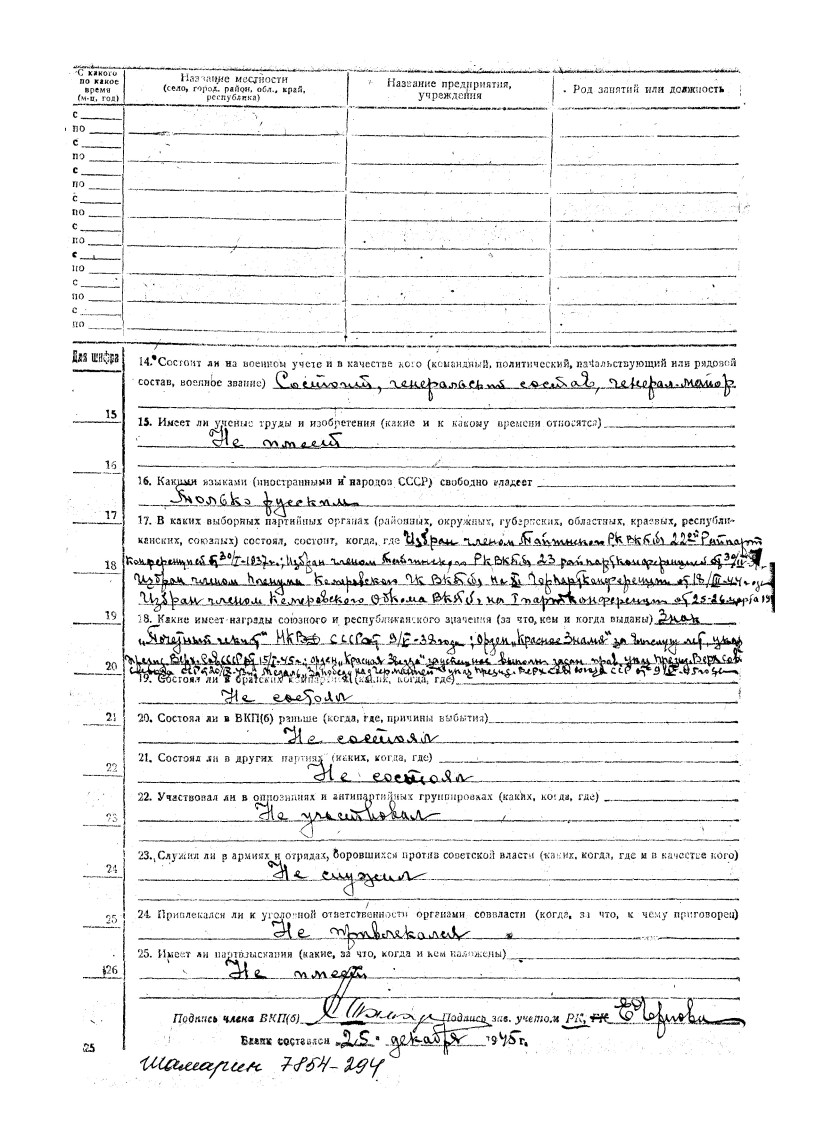 С какого по какое время (м-ц, год)
Название местности (село, город, район, обл., край, республика)
Название предприятия, учреждения
Род занятий или должность
с
по
с
по
с
по
с
по
с
по
с
по
с
по
с
по
Для шифра
14. Состоит ли на военном учете и в качестве кого (командный, политический, начальствующий или рядовой
состав, военное звание) Состоит, генеральский состав, генерал-майор
15
15. Имеет ли ученые труды и изобретения (какие и к какому времени относятся)
Не имеет
16
16. Какими языками (иностранными и народов СССР) свободно владеет
Только русским
17
17. В каких выборных партийных органах (районных, окружных, губернских, областных, краевых, республи-
канских, союзных) состоял, состоит, когда, где Избран членом РК ВКП(б) 22ой Райпарт
18
Конференцией 1937г.; Избран членом РК ВКП(б) 23 райпартконференцией
Избран членом Пленума Кемеровского ГК ВКП(б) на Горпартконференции
19
Избран членом Кемеровского Обкома ВКП(б) на I партконференции от 25-26 марта
18. Какие имеет награды союзного и республиканского значения (за что, кем и когда выданы) Знак
„Почетный чекист" НКВД СССР; орден „Красное Знамя" за выслугу лет указ
20
Орден „Красная Звезда"
19. Состоял ли в братских компартиях (каких, когда, где)
Не состоял
21
20. Состоял ли в ВКП(б) раньше (когда, где, причины выбытия)
Не состоял
22
21. Состоял ли в других партиях (каких, когда, где)
Не состоял
23
22. Участвовал ли в оппозициях и антипартийных группировках (каких, когда, где)
Не участвовал
24
23. Служил ли в армиях и отрядах, боровшихся против советской власти (каких, когда, где и в качестве кого)
Не служил
25
24. Привлекался ли к уголовной ответственности органами соввласти (когда, за что, к чему приговорен)
Не привлекался
26
25. Имеет ли партвзыскания (какие, за что, когда и кем наложены)
Не имеет
Подпись члена ВКП(б) Подпись зав. учетом РК, ГК
Бланк составлен „25" декабря 1945 г.
25
Шамарин 7854-294